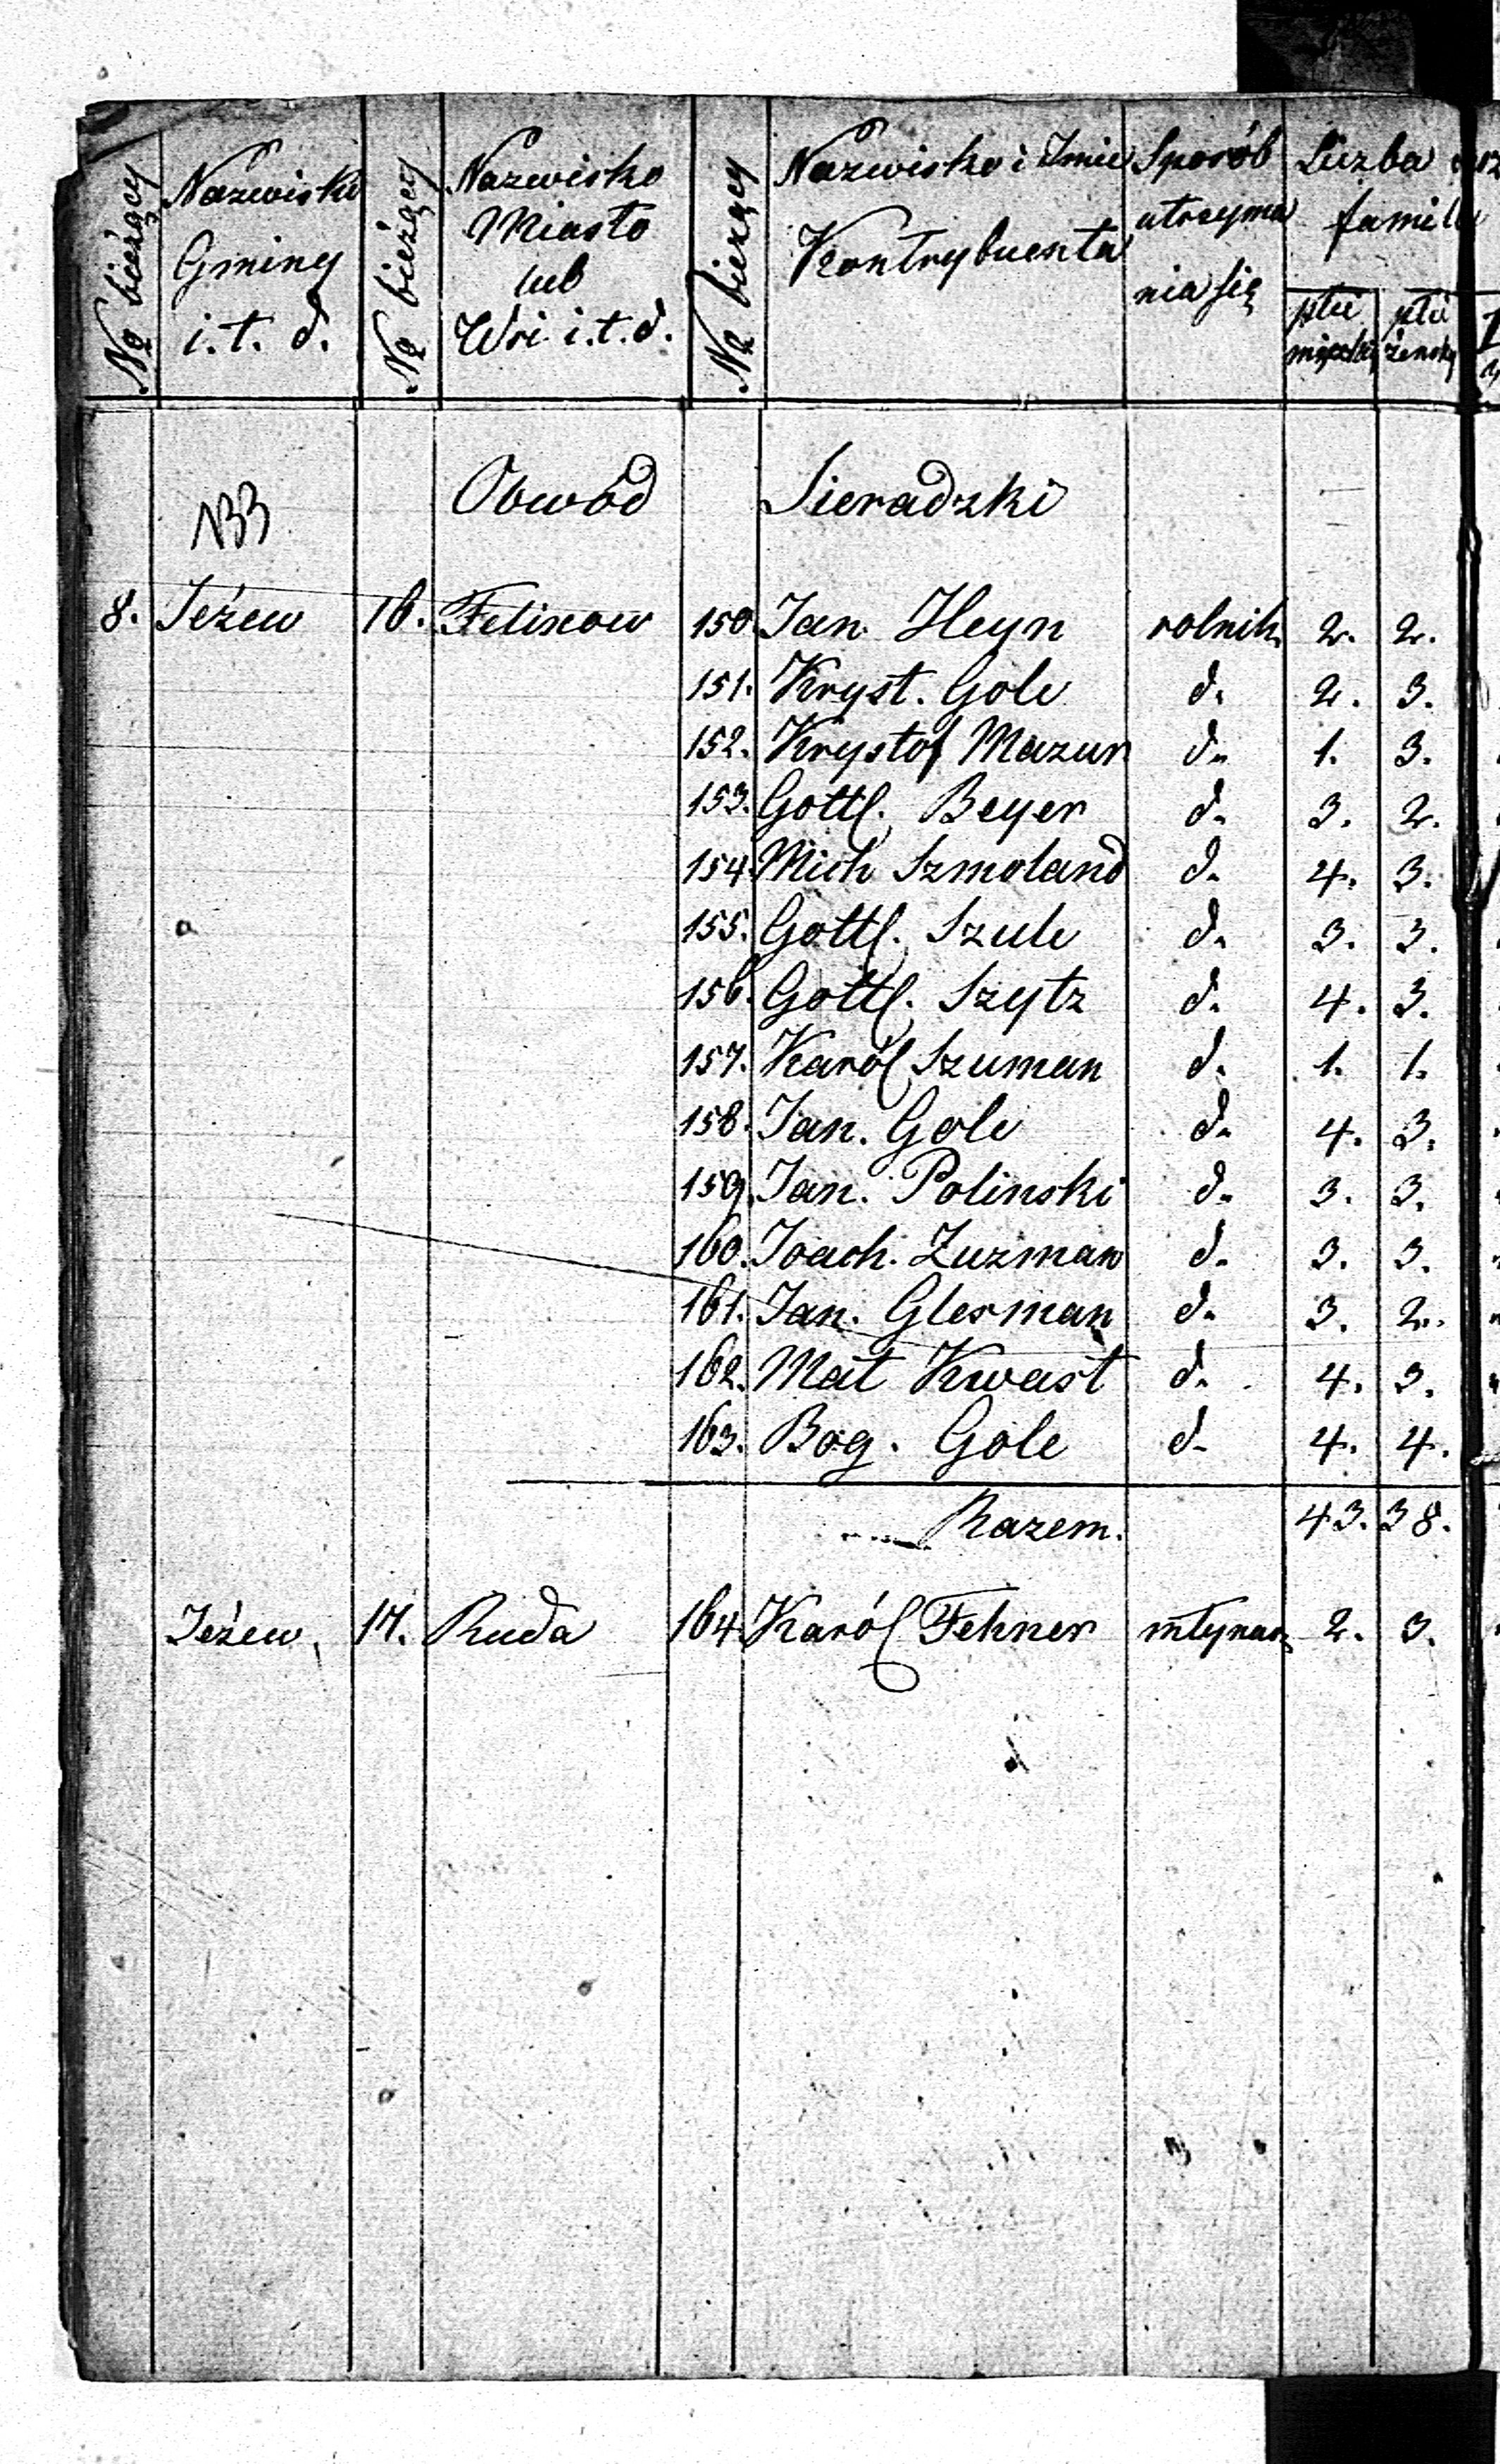 No bieżący Nazwisko Gminy i.t.d. No bieżący Nazwisko Miasto lub Wsi i.t.d. No bieżący Nazwisko i Imie Kontrybuenta Sposób utrzymania się Liczba familii płci męzki płci żensky
Obwód Sieradzki
133
8. Jeżew 16. Felixow 150 Jan Heyn rolnik 2. 2.
151. Kryst. Gole d. 2. 3.
152. Krystof Mazur d. 1. 3.
153. Gottl. Beyer d. 3. 2.
154. Mich Szmoland d. 4. 3.
155. Gottl. Szule d. 3. 3.
156. Gottl. Szytz d. 4. 3.
157. Karól Szuman d. 1. 1.
158. Jan. Gole d. 4. 3.
159. Jan. Polinski d. 3. 3.
160. Joach. Zuzman d. 3. 3.
161. Jan. Glesman d. 3. 2.
162. Mat Kwast d. 4. 3.
163. Bog. Gole d. 4. 4.
Razem. 43. 38.
Jeżew 17. Ruda 164 Karól Fehner młynarz 2. 3.